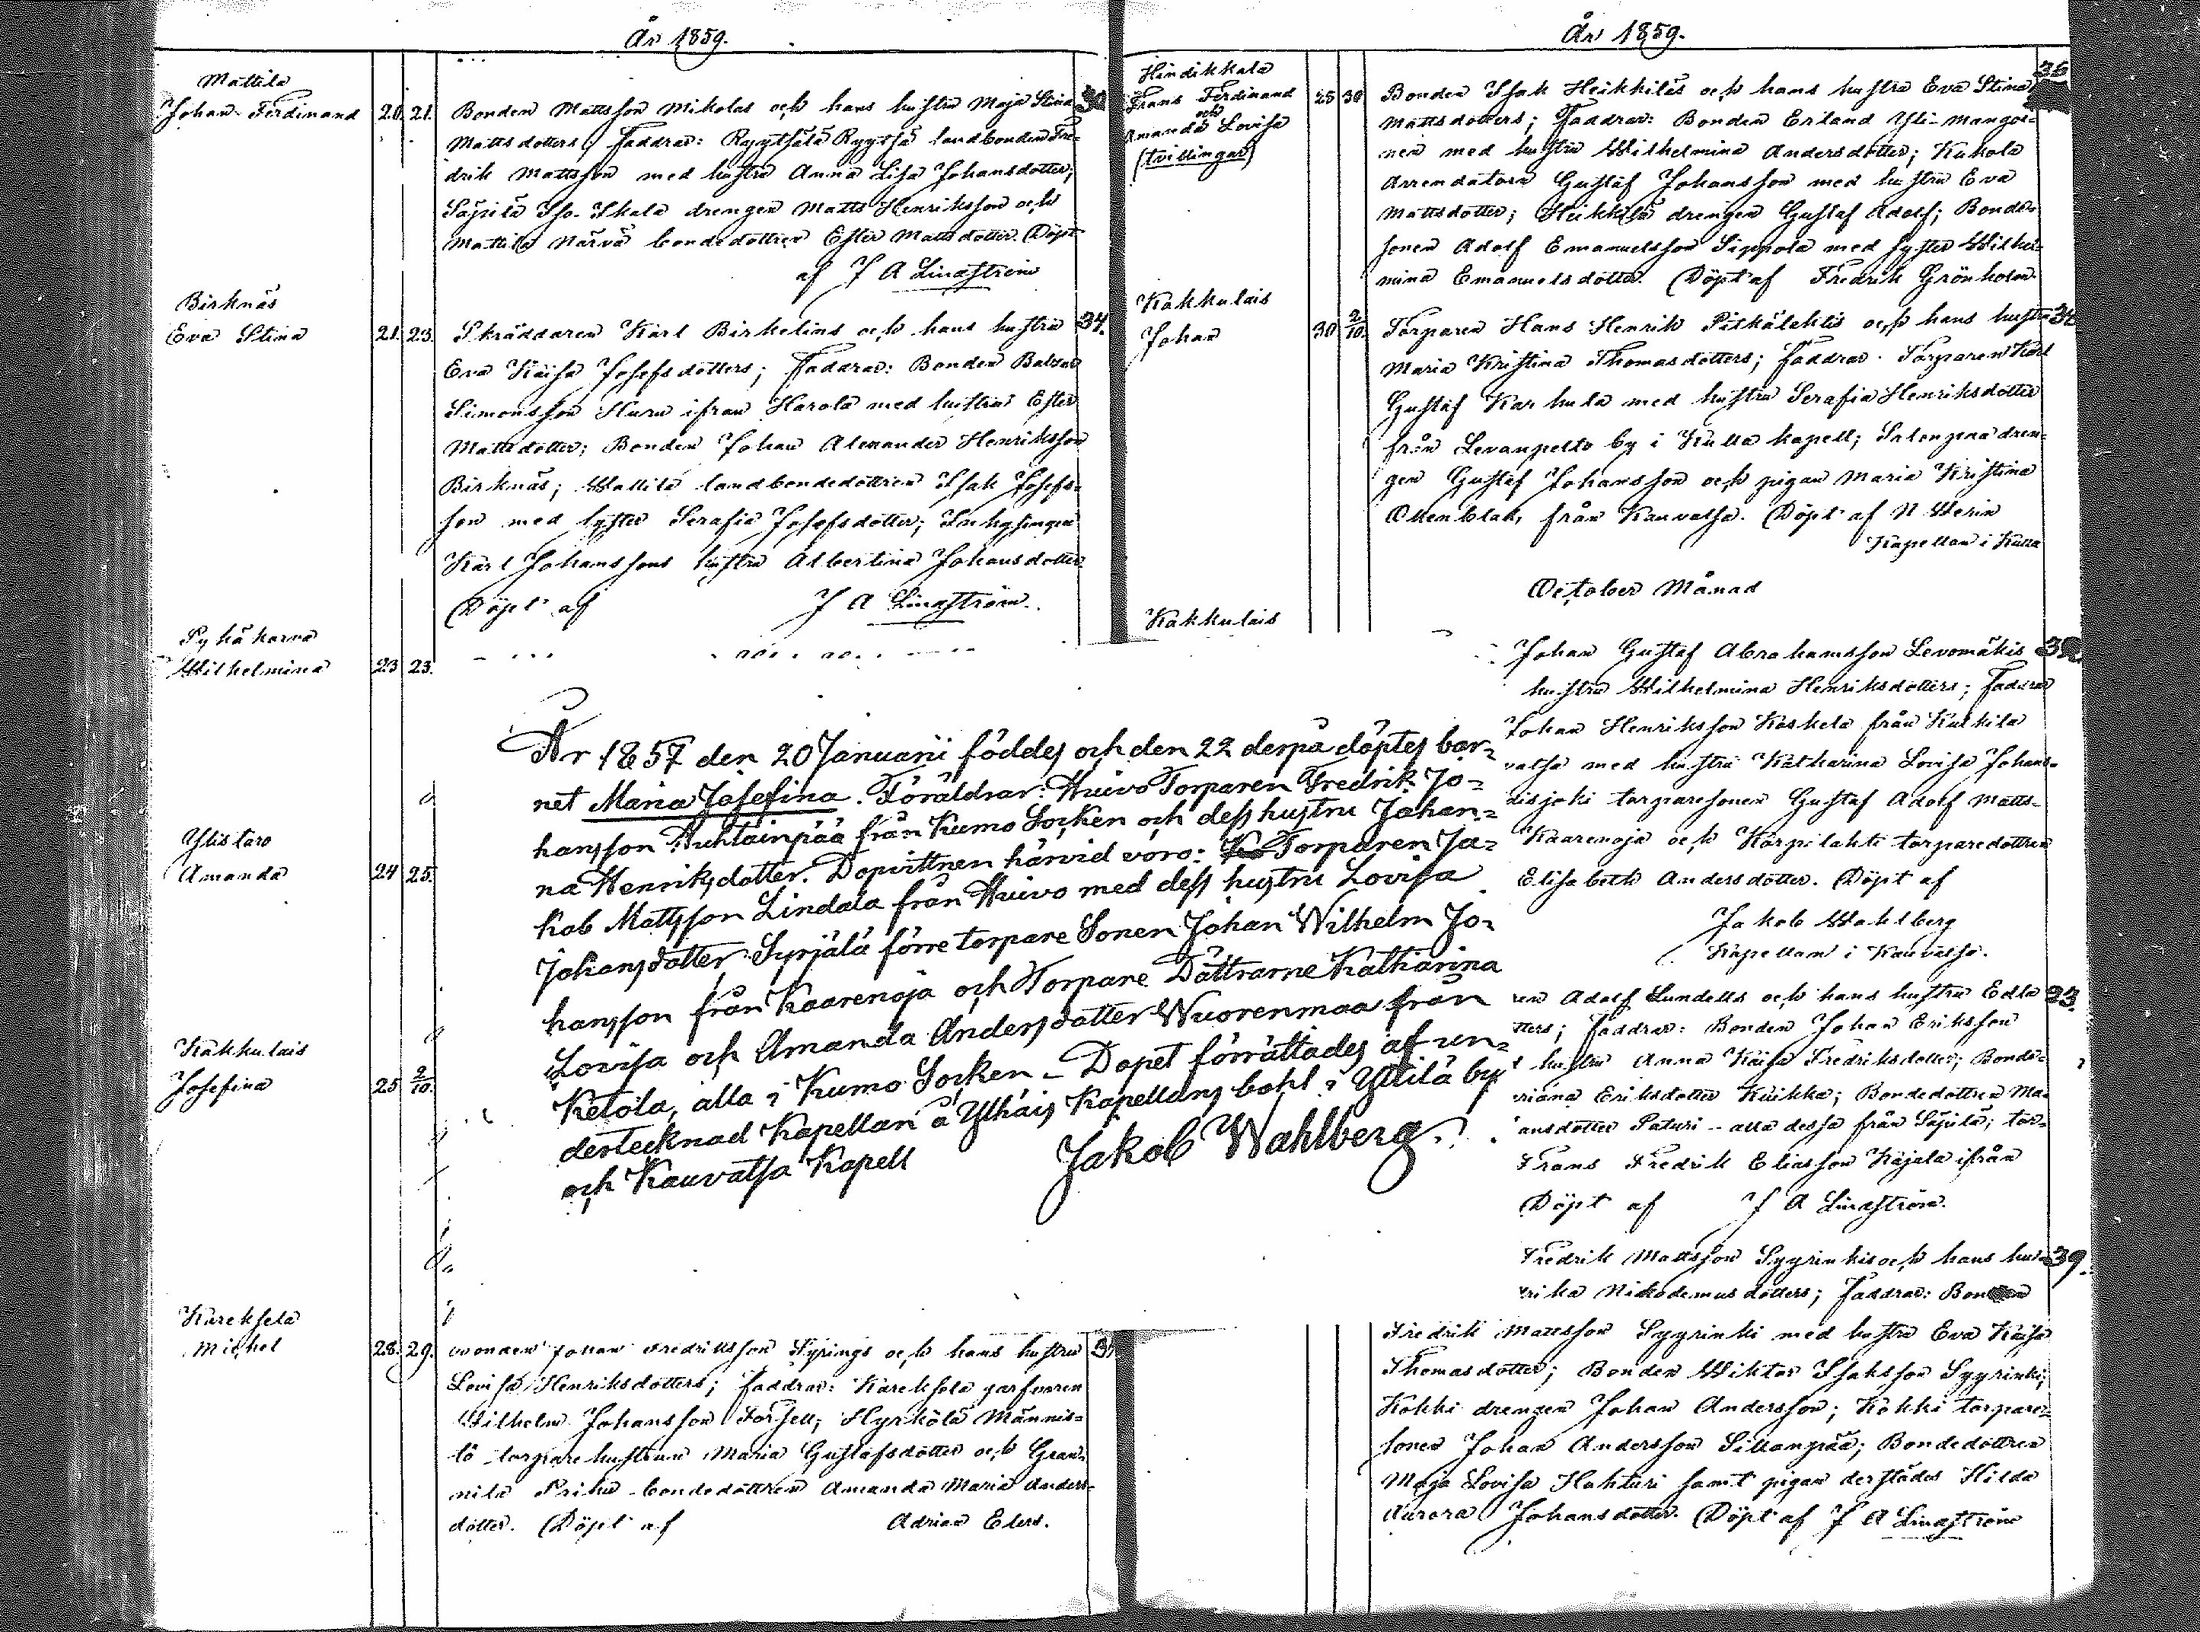 År 1859.
Mattila
Johan Ferdinand 20. 21. Bonden Mattsson Mikolas och hans hustru Maja Stina
Mattsdotters; Faddrar: Ryytsälä Ryytsä landbonden Fre-
drik Mattsson med hustru Anna Lisa Johansdotter;
Säpilä Iso-Skala drengen Matts Henriksson och
Mattila Närvä bondedottren Ester Mattsdotter. Döpt
af J A Lindström
Birknäs
Eva Stina 21. 23. Skräddaren Karl Birkelins och hans hustru 34.
Eva Kaisa Josefsdotters; Faddrar: Bonden Baltzar
Simonsson Huru ifran Harola med hustru Ester
Mattsdotter; Bonden Johan Alexander Henriksson
Birknäs; Wallila landbondedottren Isak Josefs-
son med syster Serafia Josefsdotter; Inhysingen
Karl Johanssons hustru Albertina Johansdotter
Döpt af J A Lindström.
Pyhäkorva
Wilhelmina 23 23.
Ylistaro
Amanda 24 25.
Kakkulais
Josefina 25 2/10.
Kareksela
Michel 28. 29. Bonden Johan Fredriksson Tyrings och hans hustru
Lovisa Henriksdotters; Faddrar: Kareksela
Wilhelm Johansson Forsell; Hyrkölä Männis-
tö torparehustrun Maria Gustafsdotter och Gran-
nila Prihu bondedottren Amanda Maria Anders-
dotter. Döpt af Adrian Elers.
År 1857 den 20 Januarii föddes och den 22 derpå döptes bar-
net Maria Josefina. Föräldrar: Huivo Torparen Fredrik Jo-
hansson Huhtainpää från Kumo Socken och dess hustru Johan-
na Henriksdotter. Dopvittnen härvid voro: Torparen Ja-
kob Mattsson Lindala från Huivo med dess hustru Lovisa
Johansdotter Syrjälä förre torpare Sonen Johan Wilhelm Jo-
hansson från Kaarenoja och Torpare Döttrarne Katharina
Lovisa och Amanda Andersdotter Wuorenmaa från
Ketola, alla i Kumo Socken – Dopet förrättades af un-
dertecknad Kapellan å Ylhäis Kapellans bohl i Yttilä by
och Kauvatsa Kapell Jakob Wahlberg.
År 1859.
Hindikkala
Frans Ferdinand
och
Amanda Lovisa
(tvillingar)
25 30 Bonden Isak Heikkiläs och hans hustru Eva Stina
Mattsdotters; Faddrar: Bonden Erland Yli-Mangoi-
nen med hustru Wilhelmina Andersdotter; Kukola
Arrendatorn Gustaf Johansson med hustru Eva
Mattsdotter; Heikkilä drengen Gustaf Adolf; Bonde-
sonen Adolf Emanuelsson Sippola med syster Wilhel-
mina Emanuelsdotter. Döpt af Fredrik Grönholm
Kakkulais
Johan 30 2/10. Torparen Hans Henrik Pitkälehtis och hans hustru
Maria Kristina Thomasdotters; Faddrar: Torparen Karl
Gustaf Karhula med hustru Serafia Henriksdotter
från Levanpelto by i Kulla kapell; dren-
gen Gustaf Johansson och pigan Maria Kristina
från Kauvatsa. Döpt af N Merin
Kapellan i Kulla
October Månad
Kakkulais
Johan Gustaf Abrahamsson Levomäkis
hustru Wilhelmina Henriksdotters; Faddrar
Johan Henriksson Koskela från Kulkila
med hustru Katharina Lovisa Johans-
torparesonen Gustaf Adolf Matts-
Kaarenoja och Karpilahti torparedottren
Elisabeth Andersdotter. Döpt af
Jakob Wahlberg
Kapellan i Kauvatsa.
Adolf Lundells och hans hustru Edla
Faddrar: Bonden Johan Eriksson
hustru Anna Kaisa Fredriksdotter; Bonde-
Eriksdotter Kuikka; Bondedottren Ma-
ansdotter Paturi – alla dessa från Säpilä; tor-
Frans Fredrik Eliasson Kojala ifrån
Döpt af J A Lindström.
Fredrik Mattsson Syyrinkis och hans hus- 39.
Nikodemusdotters; Faddrar: Bonden
Fredrik Mattsson Syyrinki med hustru Eva Kaisa
Thomasdotter; Bonden Wiktor Isaksson Syyrinki;
Kokki drengen Johan Andersson; Kokki torpare-
sonen Johan Andersson Sillanpää; Bondedottren
Maja Lovisa Hahturi samt pigan derstädes Hilda
Aurora Johansdotter. Döpt af J A Lindström